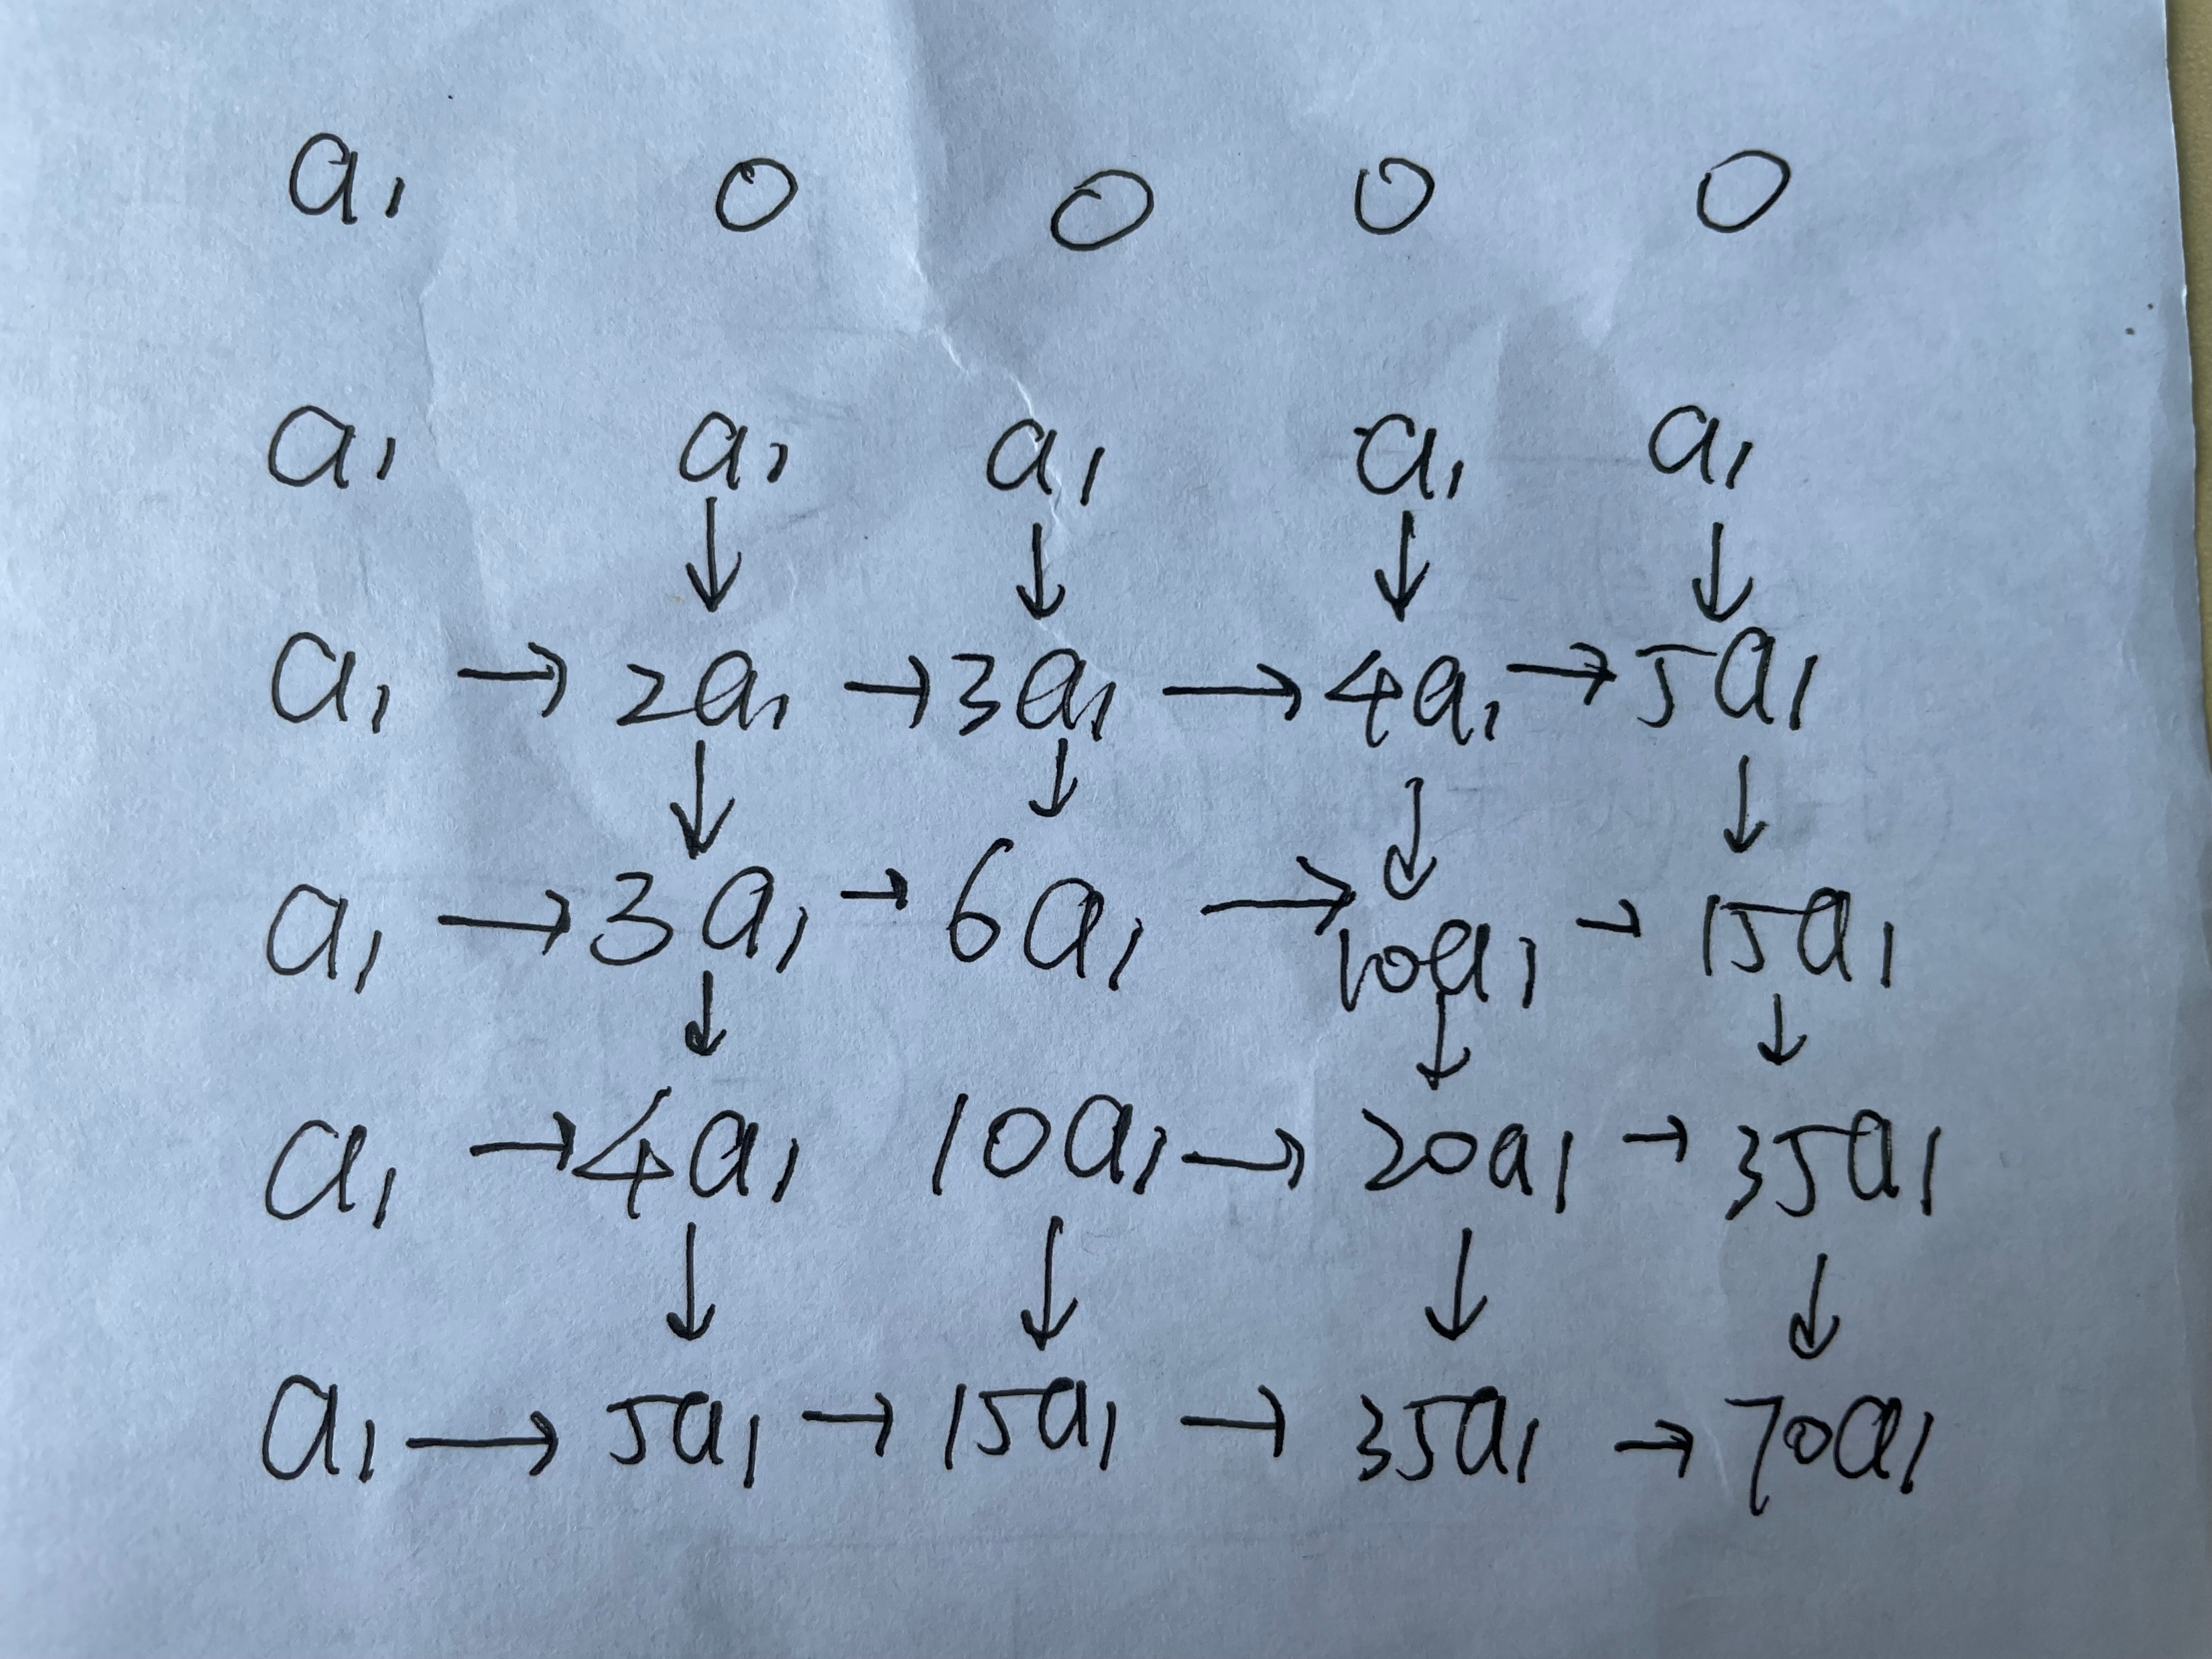 a₁ 0 0 0 0
a₁ a₁ a₁ a₁ a₁
↓ ↓ ↓ ↓
a₁ → 2a₁ → 3a₁ → 4a₁ → 5a₁
↓ ↓ ↓ ↓
a₁ → 3a₁ → 6a₁ → 10a₁ → 15a₁
↓ ↓ ↓
a₁ → 4a₁ 10a₁ → 20a₁ → 35a₁
↓ ↓ ↓ ↓
a₁ → 5a₁ → 15a₁ → 35a₁ → 70a₁